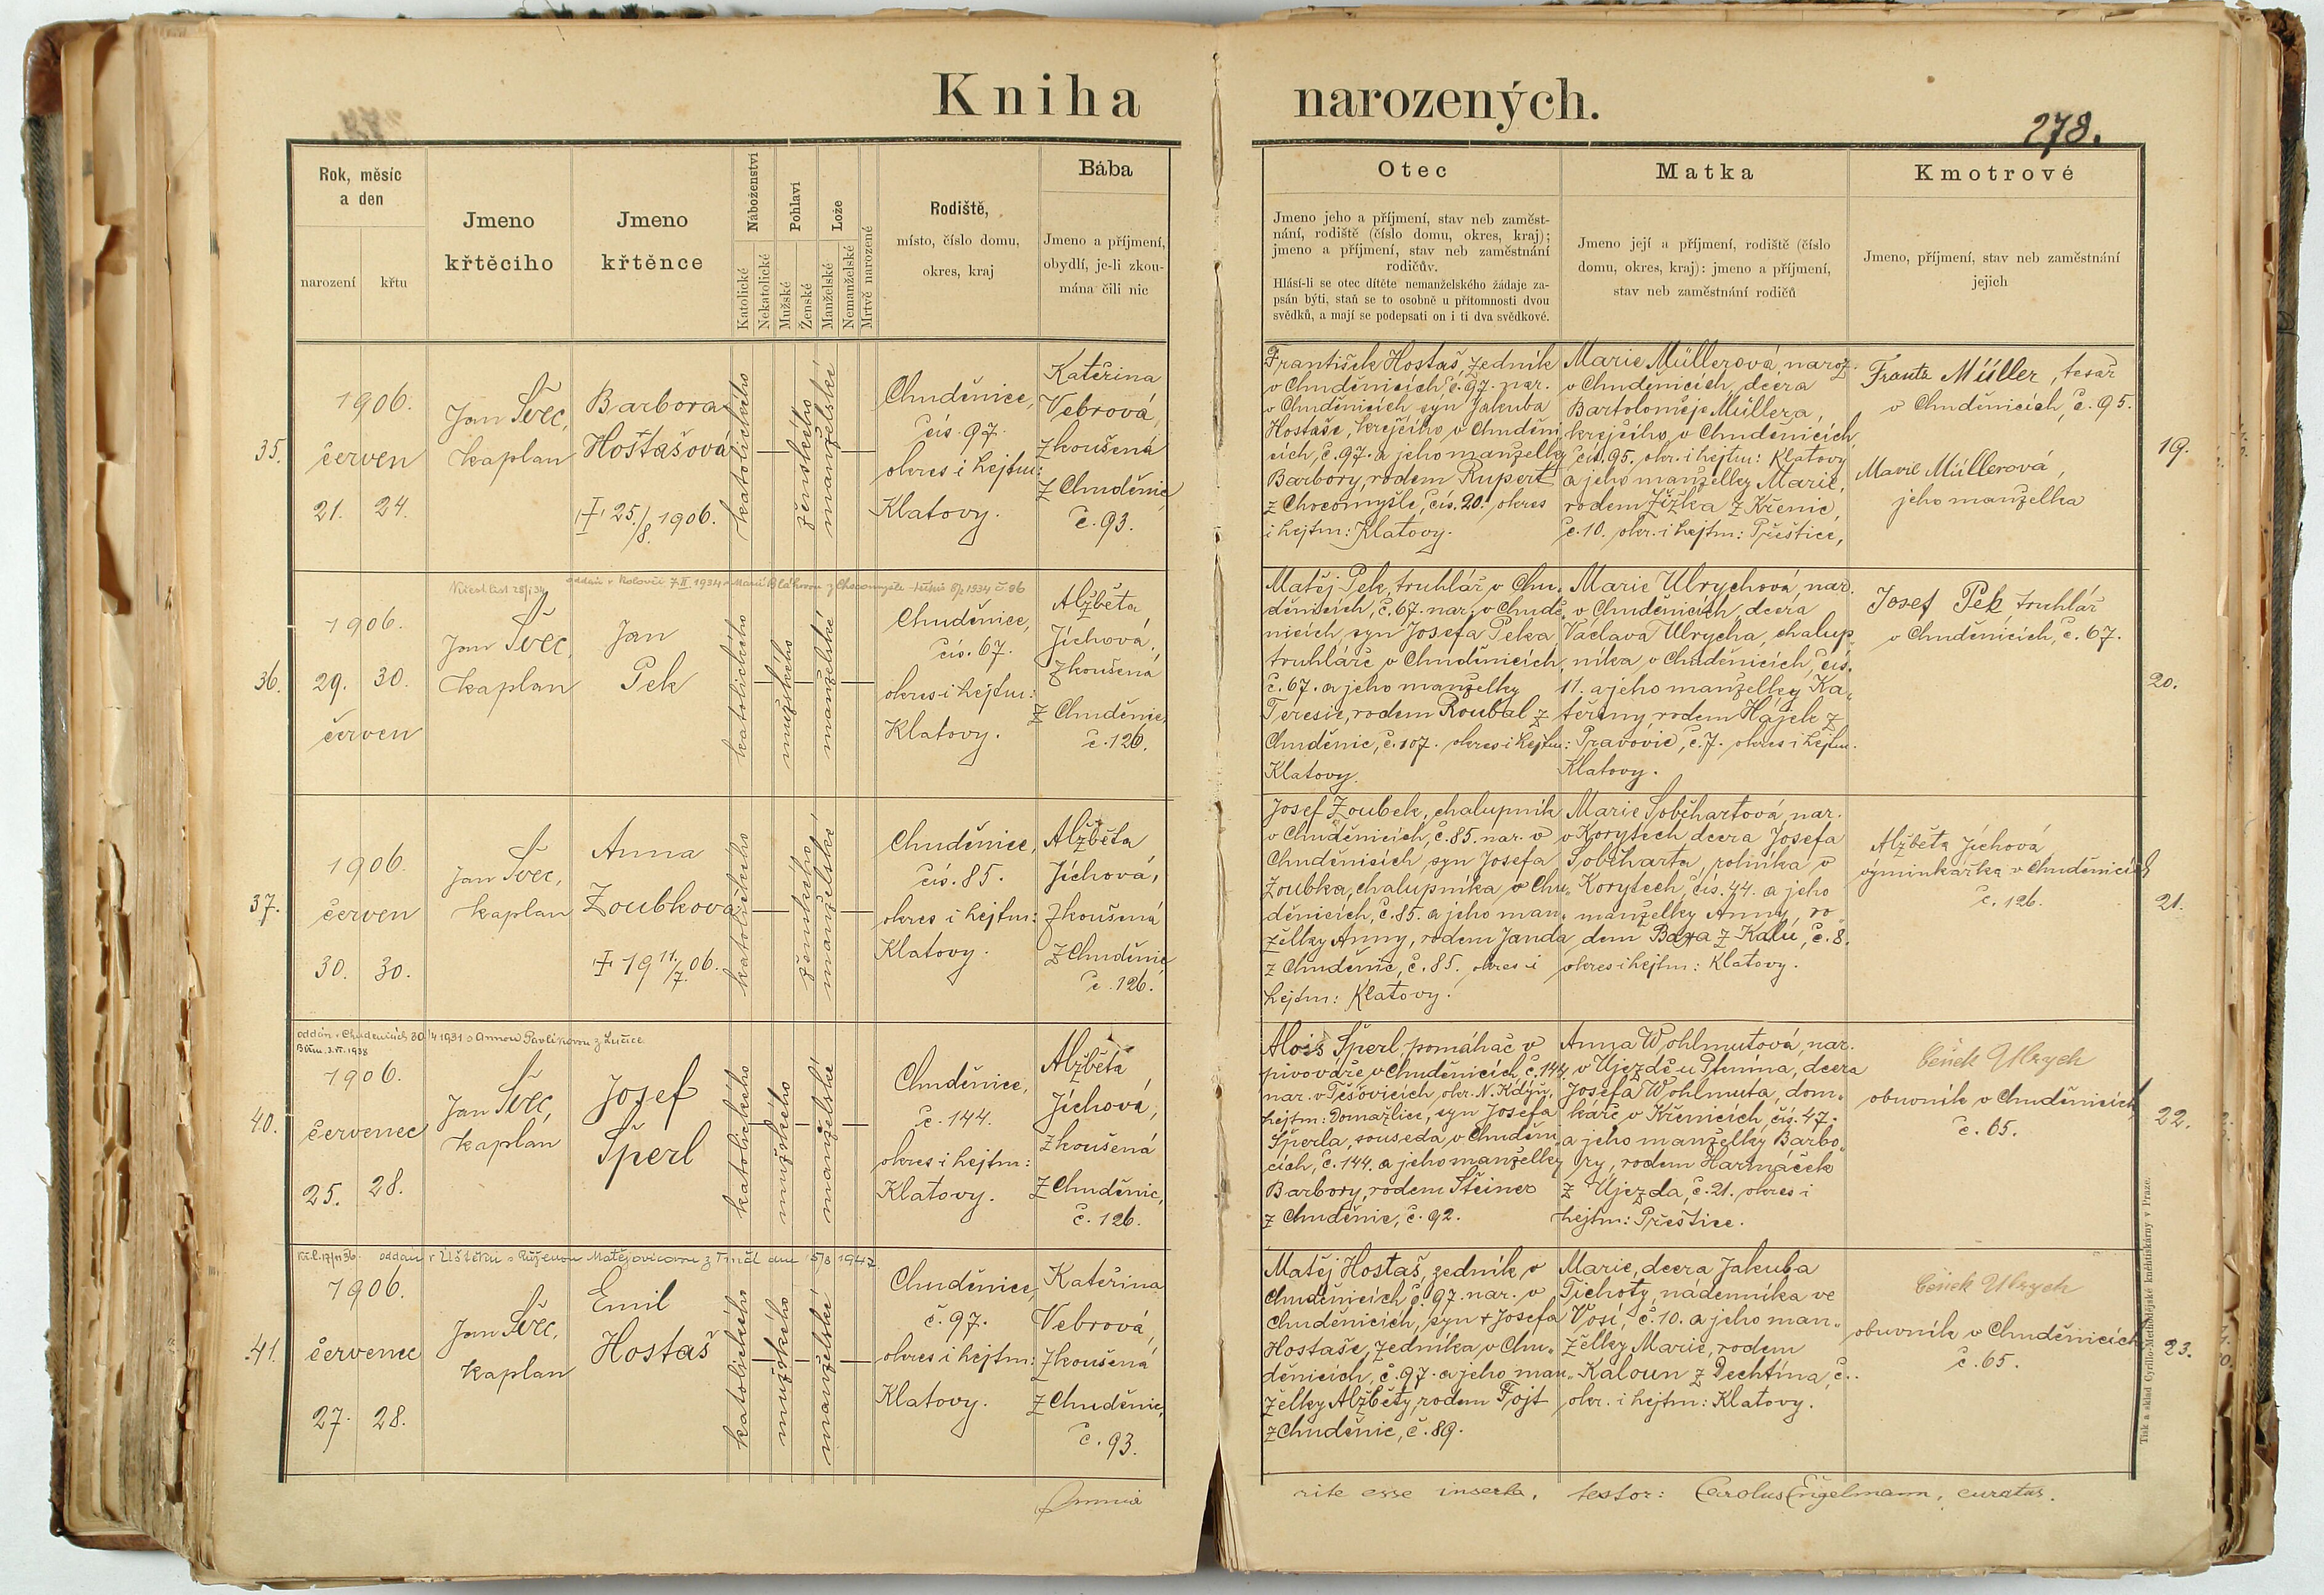 Kniha narozených.
278.
Rok, měsíc
a den
narození
křtu
Jmeno
křtěcího
Jmeno
křtěnce
Náboženství
Katolické
Nekatolické
Pohlaví
Mužské
Ženské
Lože
Manželské
Nemanželské
Mrtvě narozené
Rodiště,
místo, číslo domu,
okres, kraj
Bába
Jmeno a příjmení,
obydlí, je-li zkou-
mána čili nic
Otec
Jmeno jeho a příjmení, stav neb zaměst-
nání, rodiště (číslo domu, okres, kraj);
jmeno a příjmení, stav neb zaměstnání
rodičův.
Hlásí-li se otec dítěte nemanželského žádaje za-
psán býti, staň se to osobně u přítomnosti dvou
svědků, a mají se podepsati on i ti dva svědkové.
Matka
Jmeno její a příjmení, rodiště (číslo
domu, okres, kraj): jmeno a příjmení,
stav neb zaměstnání rodičů
Kmotrové
Jmeno, příjmení, stav neb zaměstnání
jejich
35.
1906.
červen
21. 24.
Jan Švec,
kaplan
Barbora
Hostašová
† 25./8. 1906.
katolického
ženského
manželské
Chuděnice,
čís. 97.
okres i hejtm:
Klatovy.
Kateřina
Vebrová,
zkoušená
z Chuděnic,
č. 93.
František Hostaš, zedník
v Chuděnicích č. 97. nar.
v Chuděnicích syn Jakuba
Hostaše, krejčího v Chuděni
cích, č. 97. a jeho manželky
Barbory, rodem Rupert
z Chocomyšle, čís. 20. okres
i hejtm: Klatovy.
Marie Müllerová, naroz.
v Chuděnicích, dcera
Bartoloměje Müllera,
krejčího v Chuděnicích,
čís. 95. okr. i hejtm: Klatovy
a jeho manželky Marie,
rodem Žižka z Křenic,
č. 10. okr. i hejtm: Přeštice,
Franta Müller, tesař
v Chuděnicích, č. 95.
Marie Müllerová,
jeho manželka
19.
36.
oddán v Kolovči 7.II.1934 s Marií Bláhovou z Chocomyšle
1906.
29. 30.
červen
Jan Švec,
kaplan
Jan
Pek
katolického
mužského
manželské
Chuděnice,
čís. 67.
okres i hejtm:
Klatovy.
Alžběta
Jíchová,
zkoušená
z Chuděnic,
č. 126.
Matěj Pek, truhlář v Chu-
děnicích, č. 67. nar. v Chudě-
nicích, syn Josefa Peka
truhláře v Chuděnicích,
č. 67. a jeho manželky
Teresie, rodem Roubal z
Chuděnic, č. 107. okres i hejtm:
Klatovy.
Marie Ulrychová, nar.
v Chuděnicích, dcera
Václava Ulrycha, chalup-
níka v Chuděnicích, čís.
11. a jeho manželky Ka-
teřiny, rodem Hájek z
Pravovic, č. 7. okres i hejtm.
Klatovy.
Josef Pek, truhlář
v Chuděnicích, č. 67.
20.
37.
1906
červen
30. 30.
Jan Švec,
kaplan
Anna
Zoubkova
† 19 11./7. 06.
katolického
ženského
manželské
Chuděnice,
čís. 85.
okres i hejtm:
Klatovy.
Alžběta
Jíchová,
zkoušená
z Chuděnic,
č. 126.
Josef Zoubek, chalupník
v Chuděnicích, č. 85. nar. v
Chuděnicích, syn Josefa
Zoubka, chalupníka v Chu-
děnicích, č. 85. a jeho man-
želky Anny, rodem Janda
z Chuděnic, č. 85. okres i
hejtm: Klatovy.
Marie Sobčhartová, nar.
v Korytech dcera Josefa
Sobčharta, rolníka v
Korytech, čís. 44. a jeho
manželky Anny, ro-
dem Baxa z Kalu, č. 8.
okres i hejtm: Klatovy.
Alžběta Jíchová,
výminkářka v Chuděnicích
č. 126.
21.
40.
oddán v Chuděnicích 30/4 1931 s Annou Pavlíkovou z Lučice
1906.
červenec
25. 28.
Jan Švec,
kaplan
Josef
Šperl
katolického
mužského
manželské
Chuděnice,
č. 144.
okres i hejtm:
Klatovy.
Alžběta
Jíchová,
zkoušená
z Chuděnic,
č. 126.
Alois Šperl, pomáhač v
pivováře v Chuděnicích č. 144.
nar. v Těšovicích, okr. N. Kdýň,
hejtm: Domažlice, syn Josefa
Šperla, souseda v Chuděni-
cích, č. 144. a jeho manželky
Barbory, rodem Steiner
z Chuděnic, č. 92.
Anna Wohlmutová, nar.
v Újezdě u Ptenína, dcera
Josefa Wohlmuta, dom-
káře v Křenicích, čís. 47.
a jeho manželky Barbo-
ry, rodem Harmáček
z Újezda, č. 21. okres i
hejtm: Přeštice.
Čeněk Ulrych
obuvník v Chuděnicích,
č. 65.
22.
41.
oddán v Úštěku s Růženou Matějovicovou z
1906.
červenec
27. 28.
Jan Švec,
kaplan
Emil
Hostaš
katolického
mužského
manželské
Chuděnice,
č. 97.
okres i hejtm:
Klatovy.
Kateřina
Vebrová,
zkoušená
z Chuděnic,
č. 93.
Matěj Hostaš, zedník v
Chuděnicích č. 97. nar. v
Chuděnicích, syn + Josefa
Hostaše, zedníka v Chu-
děnicích, č. 97. a jeho man-
želky Alžběty, rodem Fojt
z Chuděnic, č. 89.
Marie, dcera Jakuba
Tichoty, nádenníka ve
Vosí, č. 10. a jeho man-
želky Marie, rodem
Kaloun z Dechtína, č..
okr. i hejtm: Klatovy.
Čeněk Ulrych
obuvník v Chuděnicích
č. 65.
23.
Omnia rite esse inserta, testor: Carolus Engelmann, curatus.
Tisk a sklad Cyrillo-Methodějské knihtiskárny v Praze.